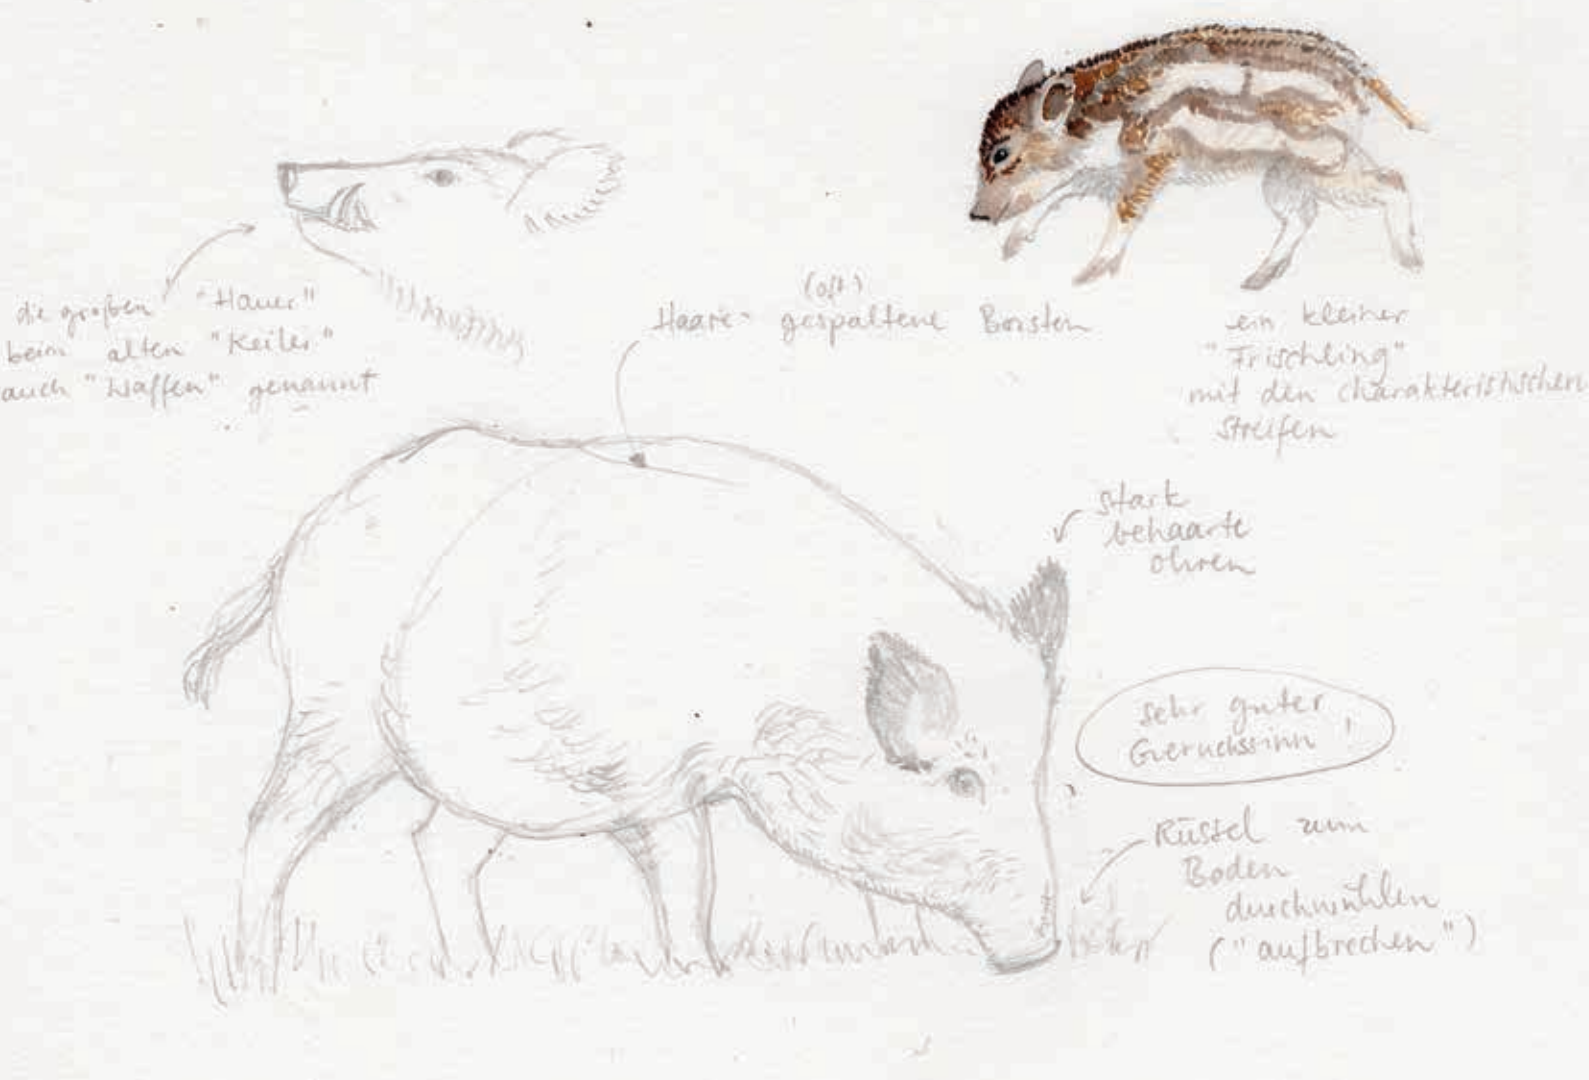 die großen "Hauer"
beim alten "Keiler"
auch "Waffen" genannt
(oft)
Haare- gespaltene Borsten
ein kleiner
"Frischling"
mit den charakteristischen
Streifen
stark
behaarte
Ohren
sehr guter
Geruchssinn!
Rüssel zum
Boden
durchwühlen
("aufbrechen")